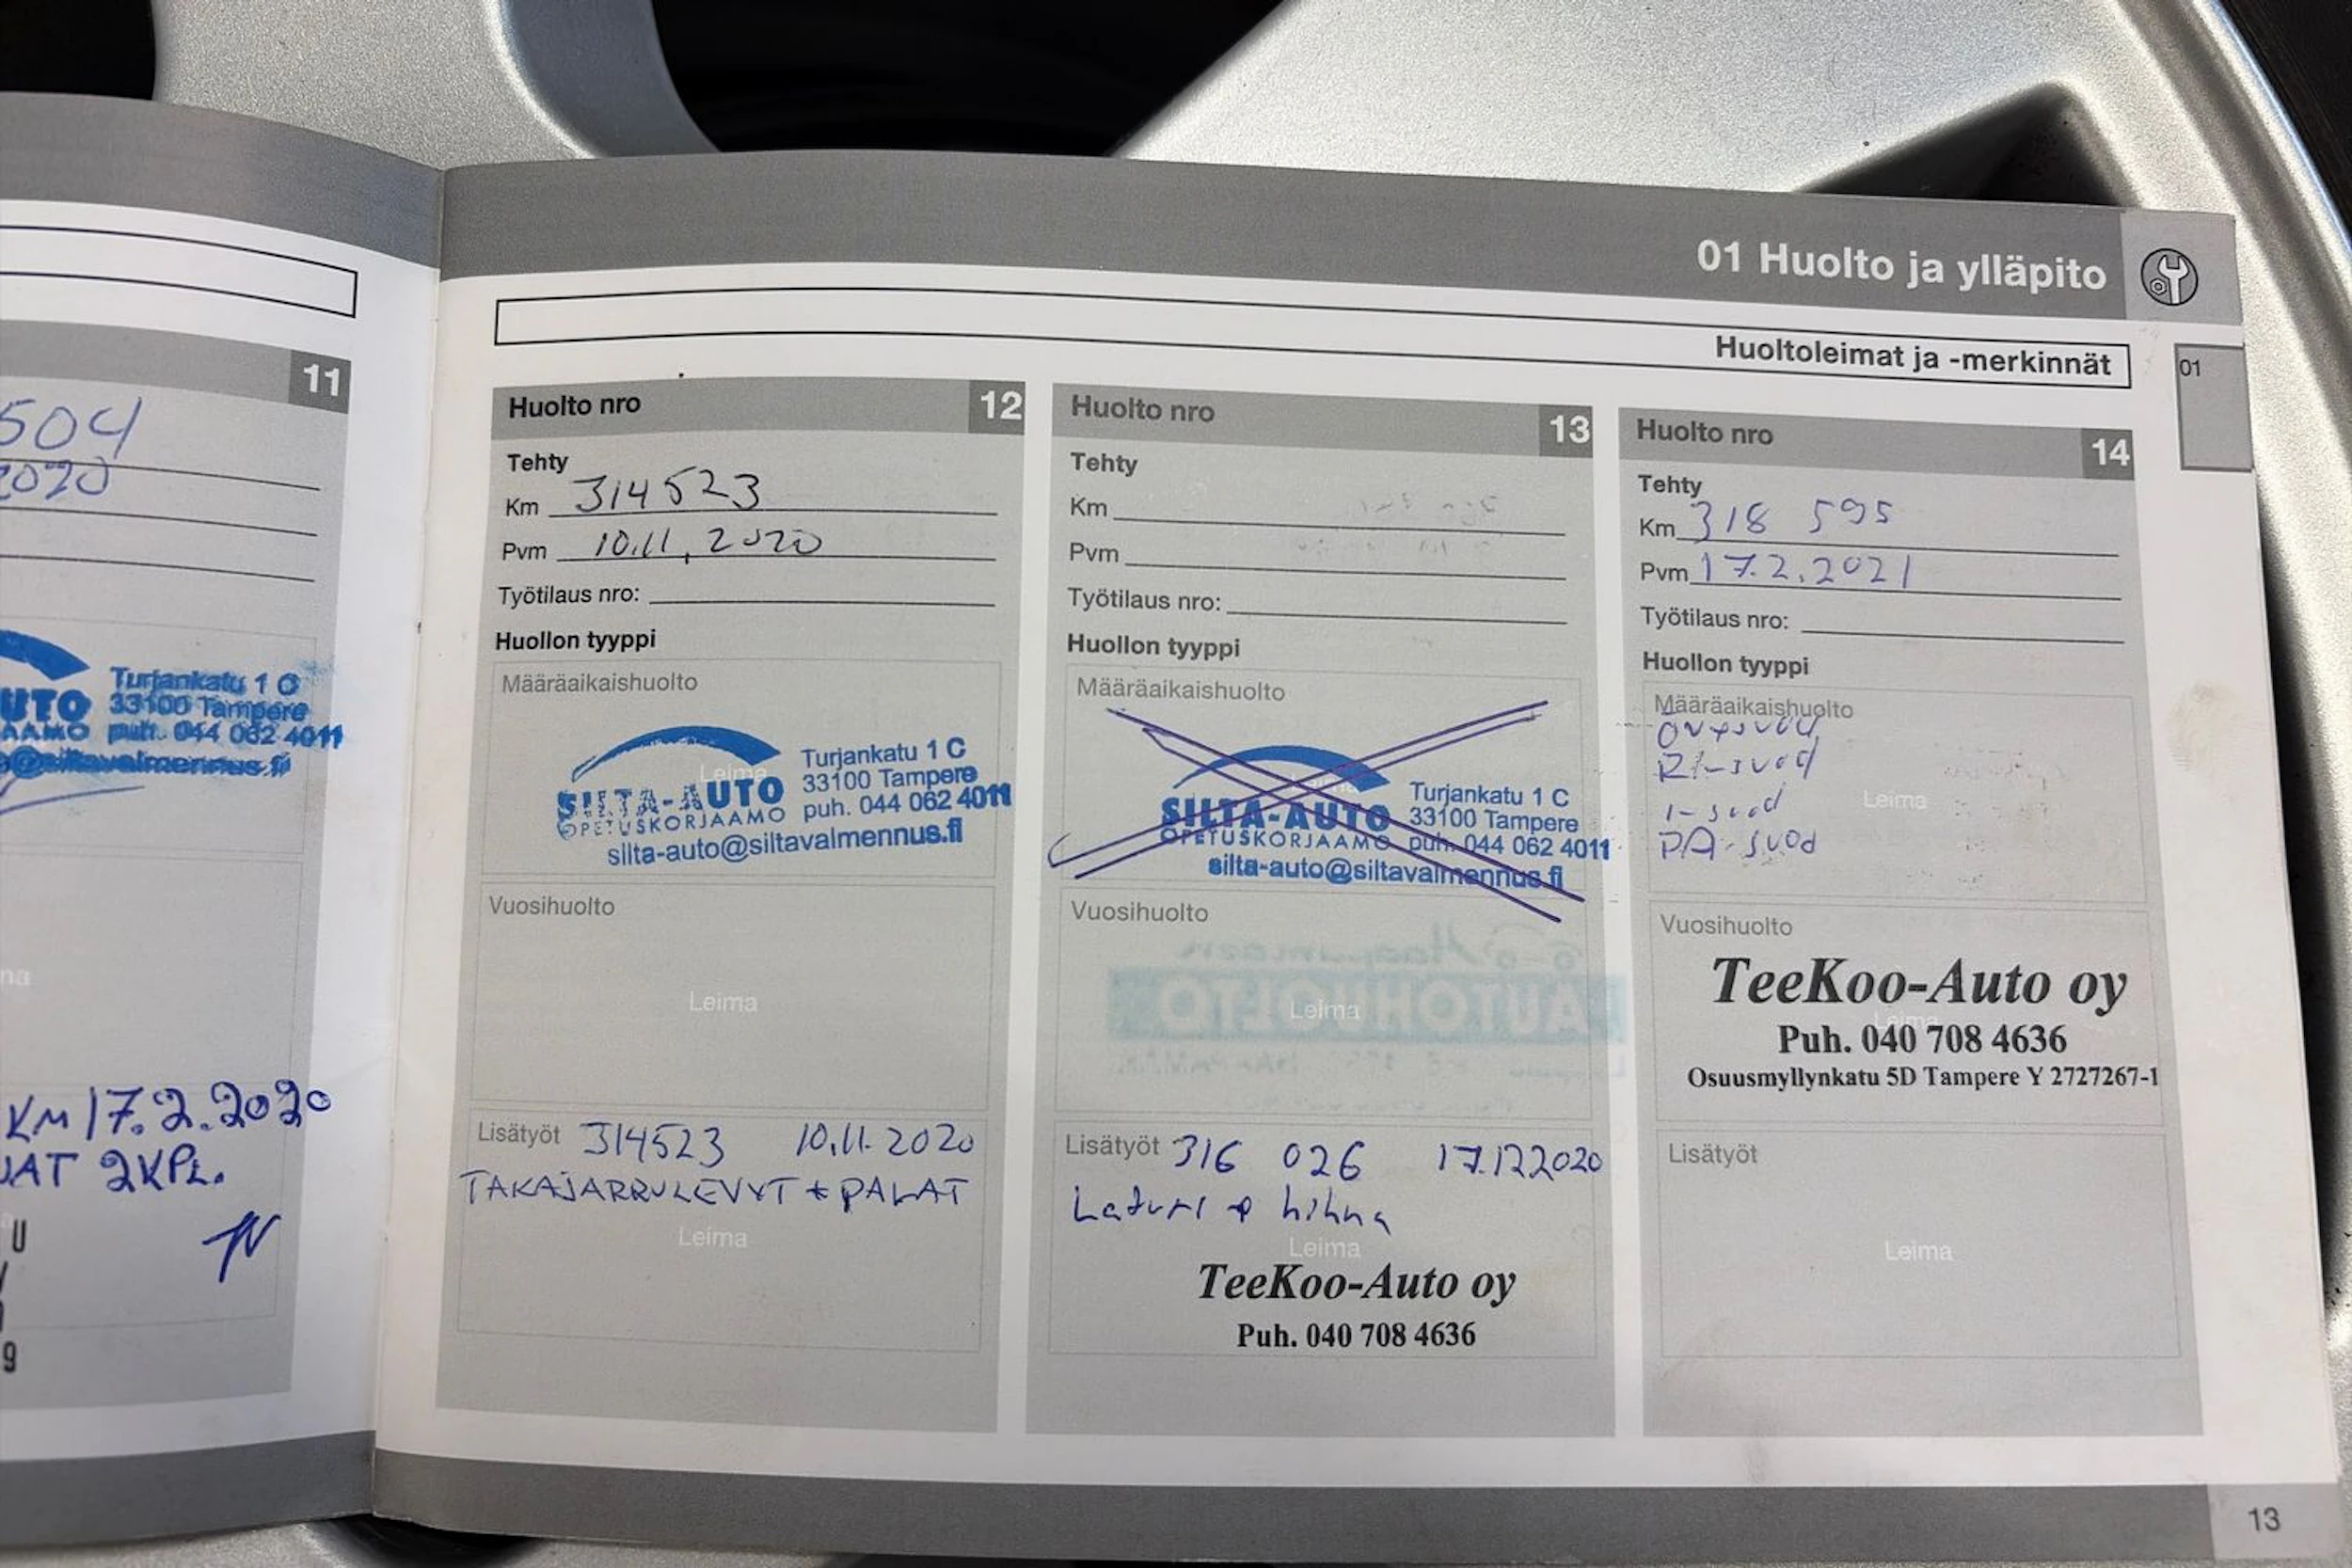 01 Huolto ja ylläpito
Huoltoleimat ja -merkinnät
01
11
504
2020
UTO
AAMO
Turjankatu 1 C
33100 Tampere
puh. 044 062 4011
@siltavalmennus.fi
KM 17.2.2020
2KPL.
U
9
Huolto nro 12
Tehty
Km 314523
Pvm 10.11.2020
Työtilaus nro:
Huollon tyyppi
Määräaikaishuolto
Leima
SILTA-AUTO
OPETUSKORJAAMO
Turjankatu 1 C
33100 Tampere
puh. 044 062 4011
silta-auto@siltavalmennus.fi
Vuosihuolto
Leima
Lisätyöt 314523 10.11.2020
TAKAJARRULEVYT + PALAT
Leima
Huolto nro 13
Tehty
Km
Pvm
Työtilaus nro:
Huollon tyyppi
Määräaikaishuolto
SILTA-AUTO
OPETUSKORJAAMO
Turjankatu 1 C
33100 Tampere
puh. 044 062 4011
silta-auto@siltavalmennus.fi
Vuosihuolto
AUTOHUOLTO
Leima
Lisätyöt 316 026 17.12.2020
Laturi + hihna
Leima
TeeKoo-Auto oy
Puh. 040 708 4636
Huolto nro 14
Tehty
Km 318 595
Pvm 17.2.2021
Työtilaus nro:
Huollon tyyppi
Määräaikaishuolto
RI-suod
Leima
I-suod
PA-suod
Vuosihuolto
TeeKoo-Auto oy
Leima
Puh. 040 708 4636
Osuusmyllynkatu 5D Tampere Y 2727267-1
Lisätyöt
Leima
13